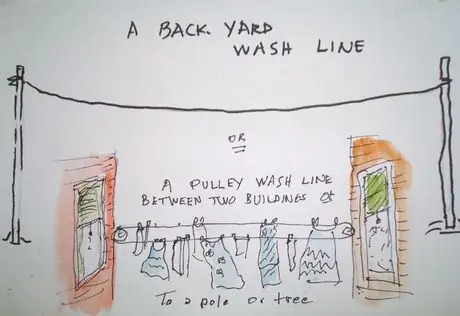 A BACK YARD
WASH LINE
OR
A PULLEY WASH LINE
BETWEEN TWO BUILDINGS or
To a pole or tree